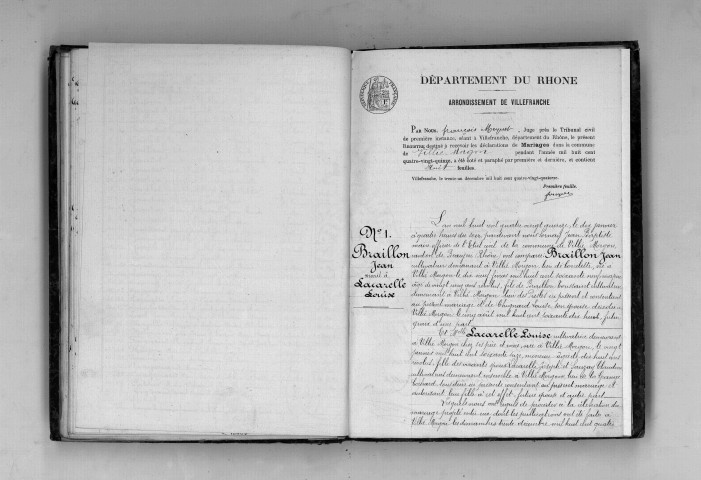 DÉPARTEMENT DU RHONE
ARRONDISSEMENT DE VILLEFRANCHE
PAR NOUS, François, Juge près le Tribunal civil
de première instance, séant à Villefranche, département du Rhône, le présent
REGISTRE destiné à recevoir les déclarations de Mariages dans la commune
de Villié Morgon pendant l'année mil huit cent
quatre-vingt-quinze, a été coté et paraphé par première et dernière, et contient
Huit feuilles.
Villefranche, le trente-un décembre mil huit cent quatre-vingt-quatorze.
Première feuille.
N° 1.
Braillon
Jean
marié à
Lacarelle
Louise
L'an mil huit cent quatre vingt quinze, le dix janvier
à quatre heures du soir, pardevant nous Jean Baptiste
maire officier de l'Etat civil de la commune de Villié Morgon
canton de Beaujeu Rhône, ont comparu Braillon Jean
cultivateur demeurant à Villié Morgon, lieu de né à
Villié Morgon le dix neuf mil huit cent soixante
âgé de vingt ans révolus, fils de Braillon cultivateur
demeurant à Villié Morgon, lieu des ici présent et consentant
au présent mariage, et de Louise, son épouse décédée
Villié Morgon août mil huit cent soixante dix huit, futur
époux d'une part
Et Lacarelle Louise cultivatrice demeurant
à Villié Morgon chez ses père et mère, née à Villié Morgon, le vingt
janvier mil huit cent soixante seize, mineure, âgée de dix huit ans
révolus, fille des Lacarelle Joseph et Claudine
cultivateurs demeurant ensemble à Villié Morgon, lieu de
tous deux ici présents consentant au présent mariage et
autorisant leur fille à cet effet, future épouse d'autre part
Lesquels nous ont requis de procéder à la célébration du
mariage projeté entre eux, dont les publications ont été faites à
Villié Morgon les dimanches trente décembre mil huit cent quatre